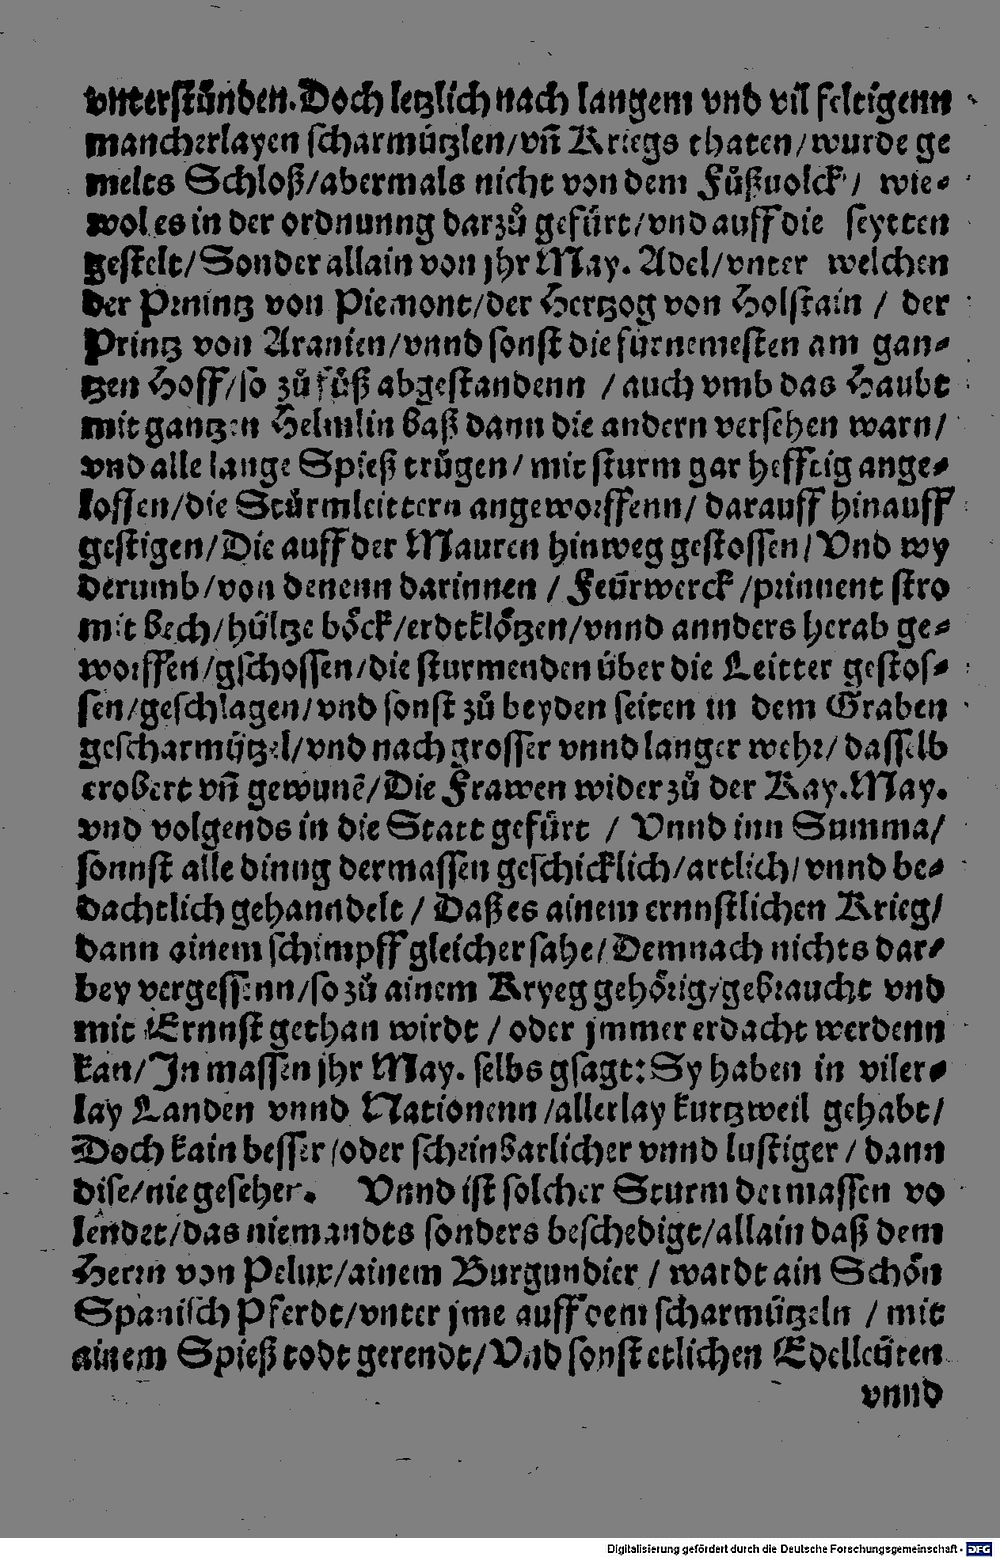 vnterstünden. Doch letzlich nach langem vnd vil feltigenn
mancherlayen scharmützlen/vñ Kriegs thaten/wurde ge
melts Schloß/abermals nicht von dem Fůßuolck/ wie-
wol es in der ordnunng darzů gefürt/vnd auff die seytten
gestelt/Sonder allain von jhr May. Adel/vnter welchen
der Prnintz von Piemont/der Hertzog von Holstain / der
Printz von Aranien/vnnd sonst die fürnemesten am gan-
tzen Hoff/so zů fůß abgestandenn / auch vmb das Haubt
mit gantzen Helmlin baß dann die andern versehen warn/
vnd alle lange Spieß trůgen/ mit sturm gar hefftig ange-
loffen/die Stürmleittern angeworffenn/ darauff hinauff
gestigen/Die auff der Mauren hinweg gestossen/Vnd wy
derumb/von denenn darinnen / Feürwerck /prinnent stro
mit bech/hültze böck/erdtklötzen/vnnd annders herab ge-
worffen/gschossen/die sturmenden über die Leitter gestos-
sen/geschlagen/vnd sonst zů beyden seiten in dem Graben
gescharmützel/vnd nach grosser vnnd langer wehr/ dasselb
erobert vñ gewunnē/Die Frawen wider zů der Kay. May.
vnd volgends in die Statt gefürt / Vnnd inn Summa/
sonnst alle dinng dermassen geschicklich/artlich/vnnd be-
dachtlich gehanndelt / Daß es ainem ernnstlichen Krieg/
dann ainem schimpff gleicher sahe/Demnach nichts dar-
bey vergessenn/so zů ainem Kryeg gehörig/gebraucht vnd
mit Ernnst gethan wirdt / oder jmmer erdacht werdenn
kan/In massen jhr May. selbs gsagt: Sy haben in viler-
lay Landen vnnd Nationenn/allerlay kurtzweil gehabt/
Doch kain besser/oder scheinbarlicher vnnd lustiger / dann
dise/nie gesehen. Vnnd ist solcher Sturm dermassen vo
lendet/das niemandts sonders beschedigt/allain daß dem
Herrn von Pelux/ainem Burgundier / wardt ain Schön
Spanisch Pferdt/vnter jme auff dem scharmützeln / mit
ainem Spieß todt gerendt/Vnd sonst etlichen Edelleüten
vnnd
Digitalisierung gefördert durch die Deutsche Forschungsgemeinschaft - DFG